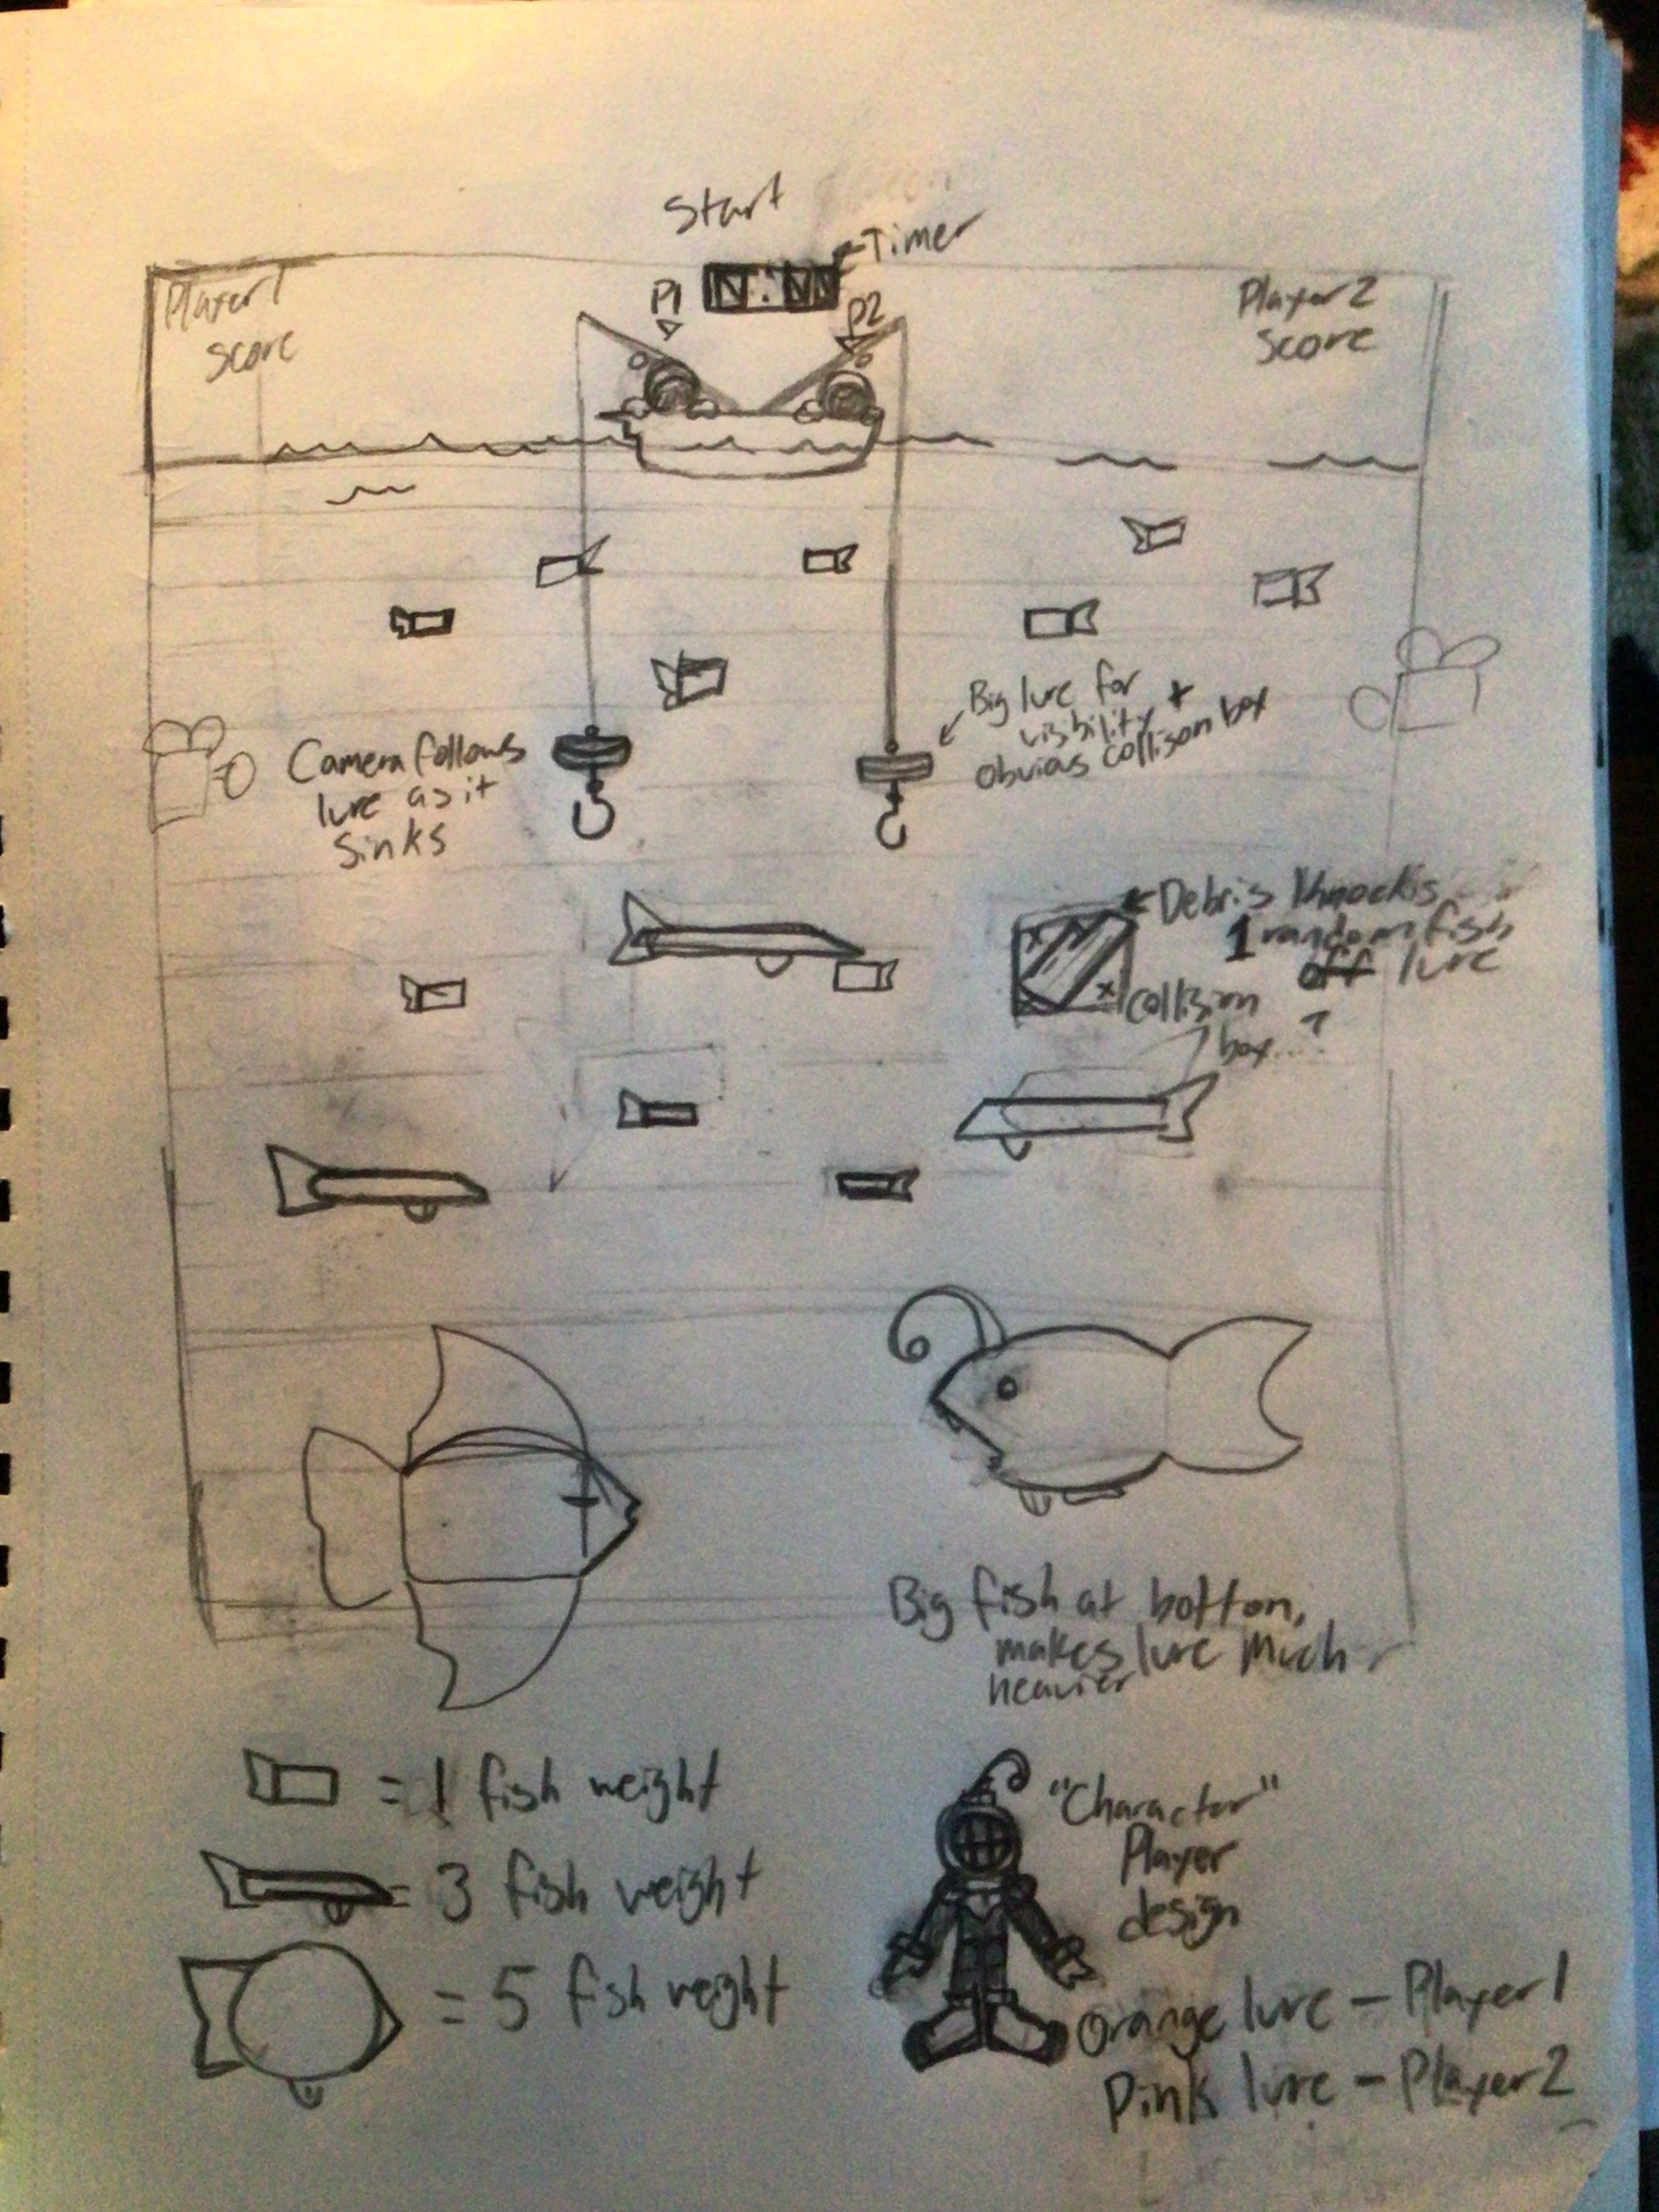 Start
Timer
Player 1
Score
P1
P2
Player 2
Score
Camera follows
lure as it
sinks
Big lure for
visibility +
obvious collison box
Debris
1 random fish
off lure
collision
box...?
Big fish at botton,
makes lure much
heavier
= 1 fish weight
= 3 fish weight
= 5 fish weight
"Character"
Player
design
Orange lure - Player 1
Pink lure - Player 2